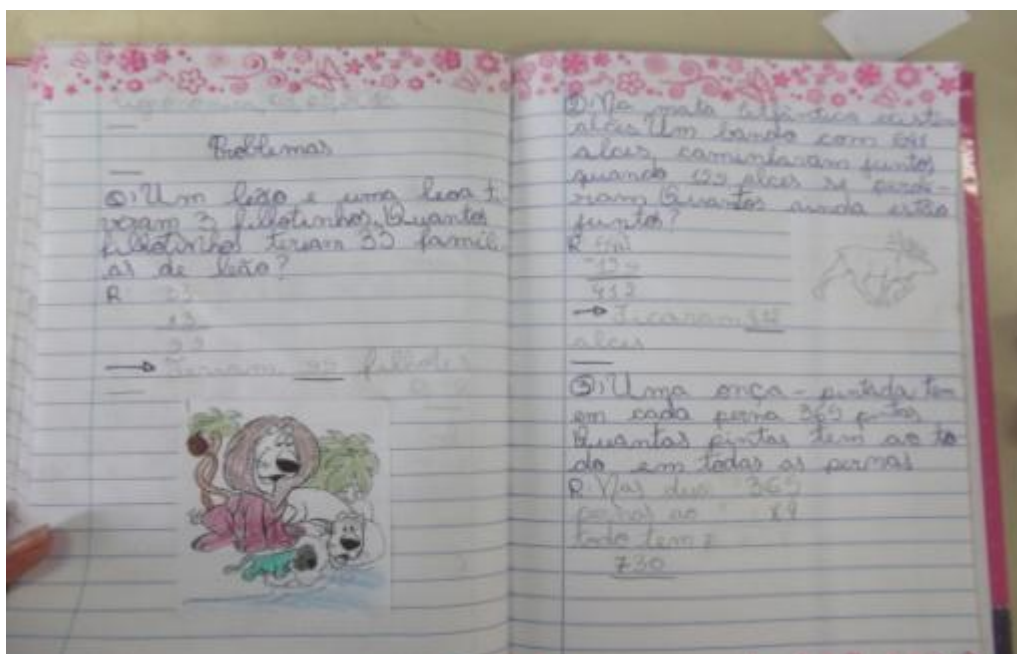 Problemas
①) Um leão e uma leoa ti
veram 3 filhotinhos. Quantos
filhotinhos teriam 33 famíli
as de leão?
R 33
x3
99
→ Teriam 99 filhotes
②) Na mata atlântica existe
alces Um bando com 541
alces, caminharam juntos
quando 129 alces se perde-
ram Quantos ainda estão
juntos?
R 541
-129
412
→ Ficaram 412
alces
③) Uma onça-pintada tem
em cada perna 365 pintas
Quantas pintas tem ao to
do em todas as pernas
R Nas 365
pernas ao
todo tem:
730